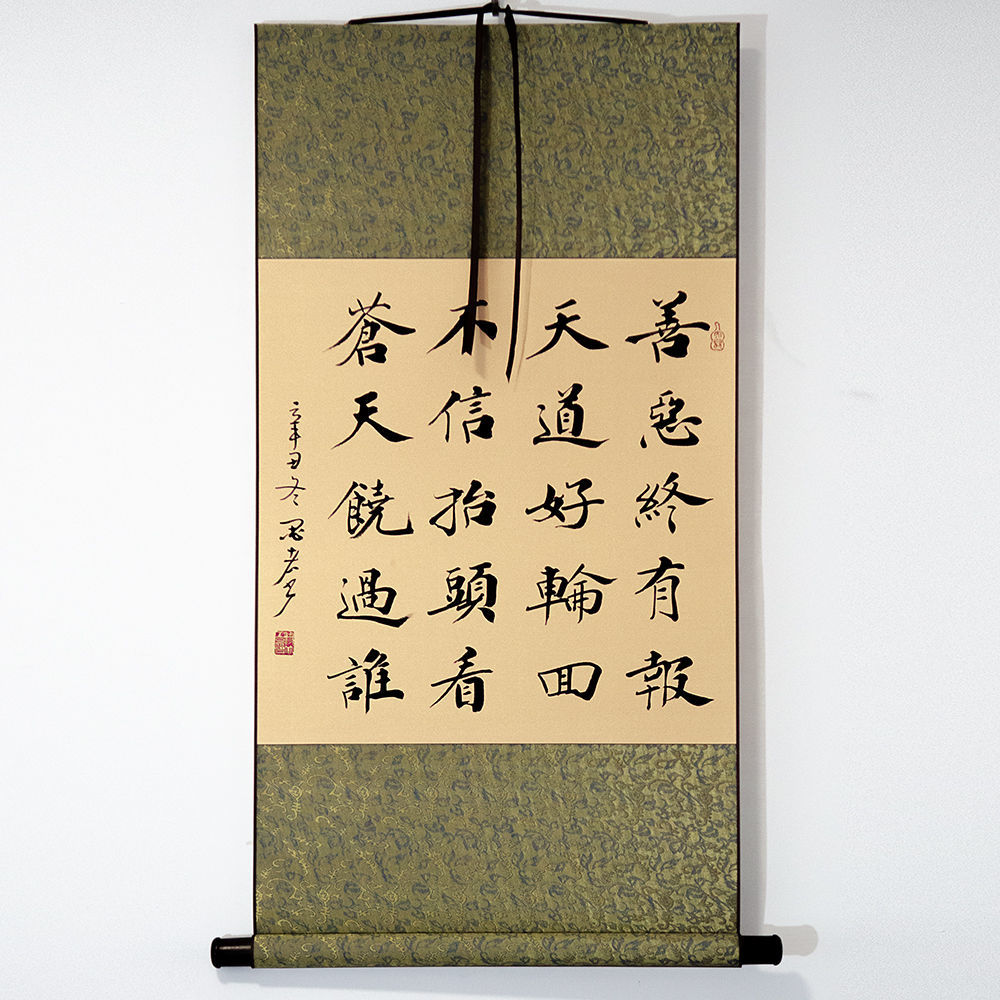 善惡終有報
天道好輪回
不信抬頭看
蒼天饒過誰
辛丑冬